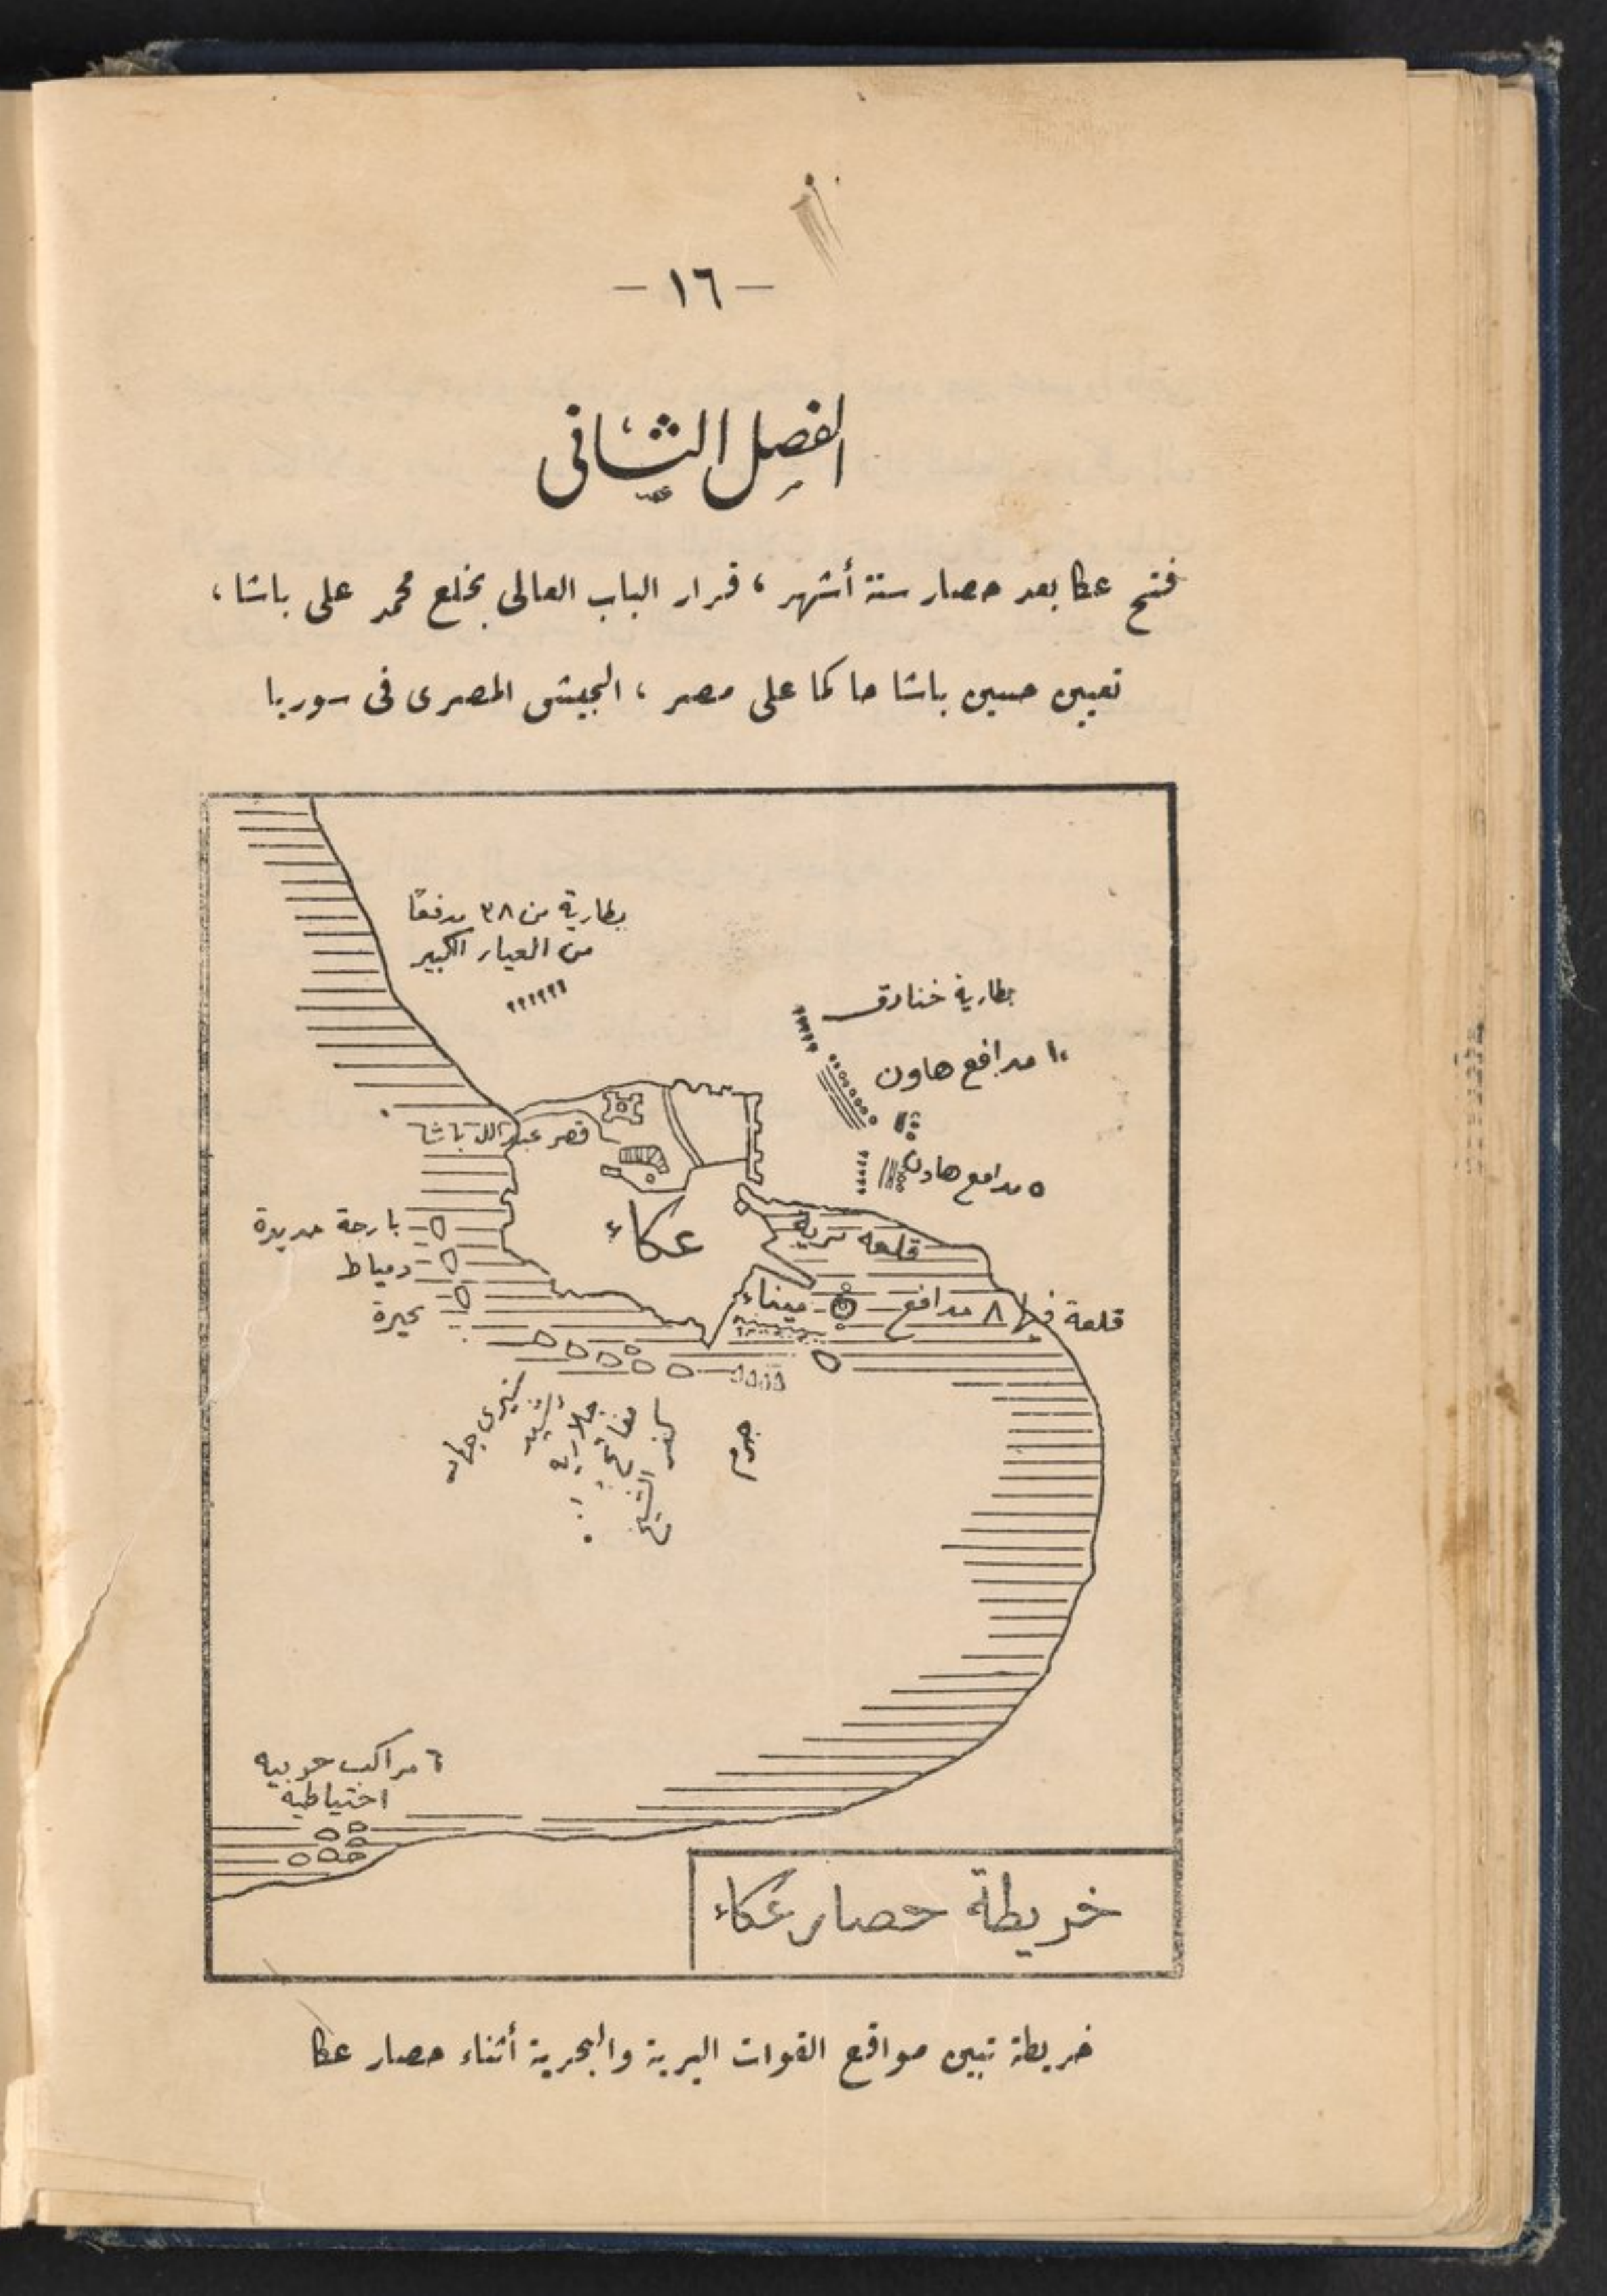 - ١٦ -
الفصل الثانى
فتح عكا بعد حصار ستة أشهر ، قرار الباب العالى بخلع محمد على باشا ،
تعيين حسين باشا حاكما على مصر ، الجيش المصرى فى سوريا
بطارية من ٣٨ مدفعًا
من العيار الكبير
بطارية خنادق
١٠ مدافع هاون
قصر عبد الله باشا
٥ مدافع هاون
عكاء
قلعه
بارجة حديدة
دمياط
بحيرة
ميناء
قلعة فيها ٨ مدافع
شيرى جهاد
رشيد
مفاتح
كفر الشيخ
٦ مراكب حربيه
احتياطيه
خريطة حصار عكاء
خريطة تبين مواقع القوات البرية والبحرية أثناء حصار عكا